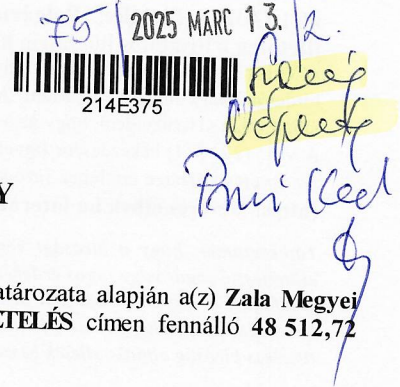 75/ 2025 MÁRC 13. /2.
214E375
Y
atározata alapján a(z) Zala Megyei
ETELÉS címen fennálló 48 512,72